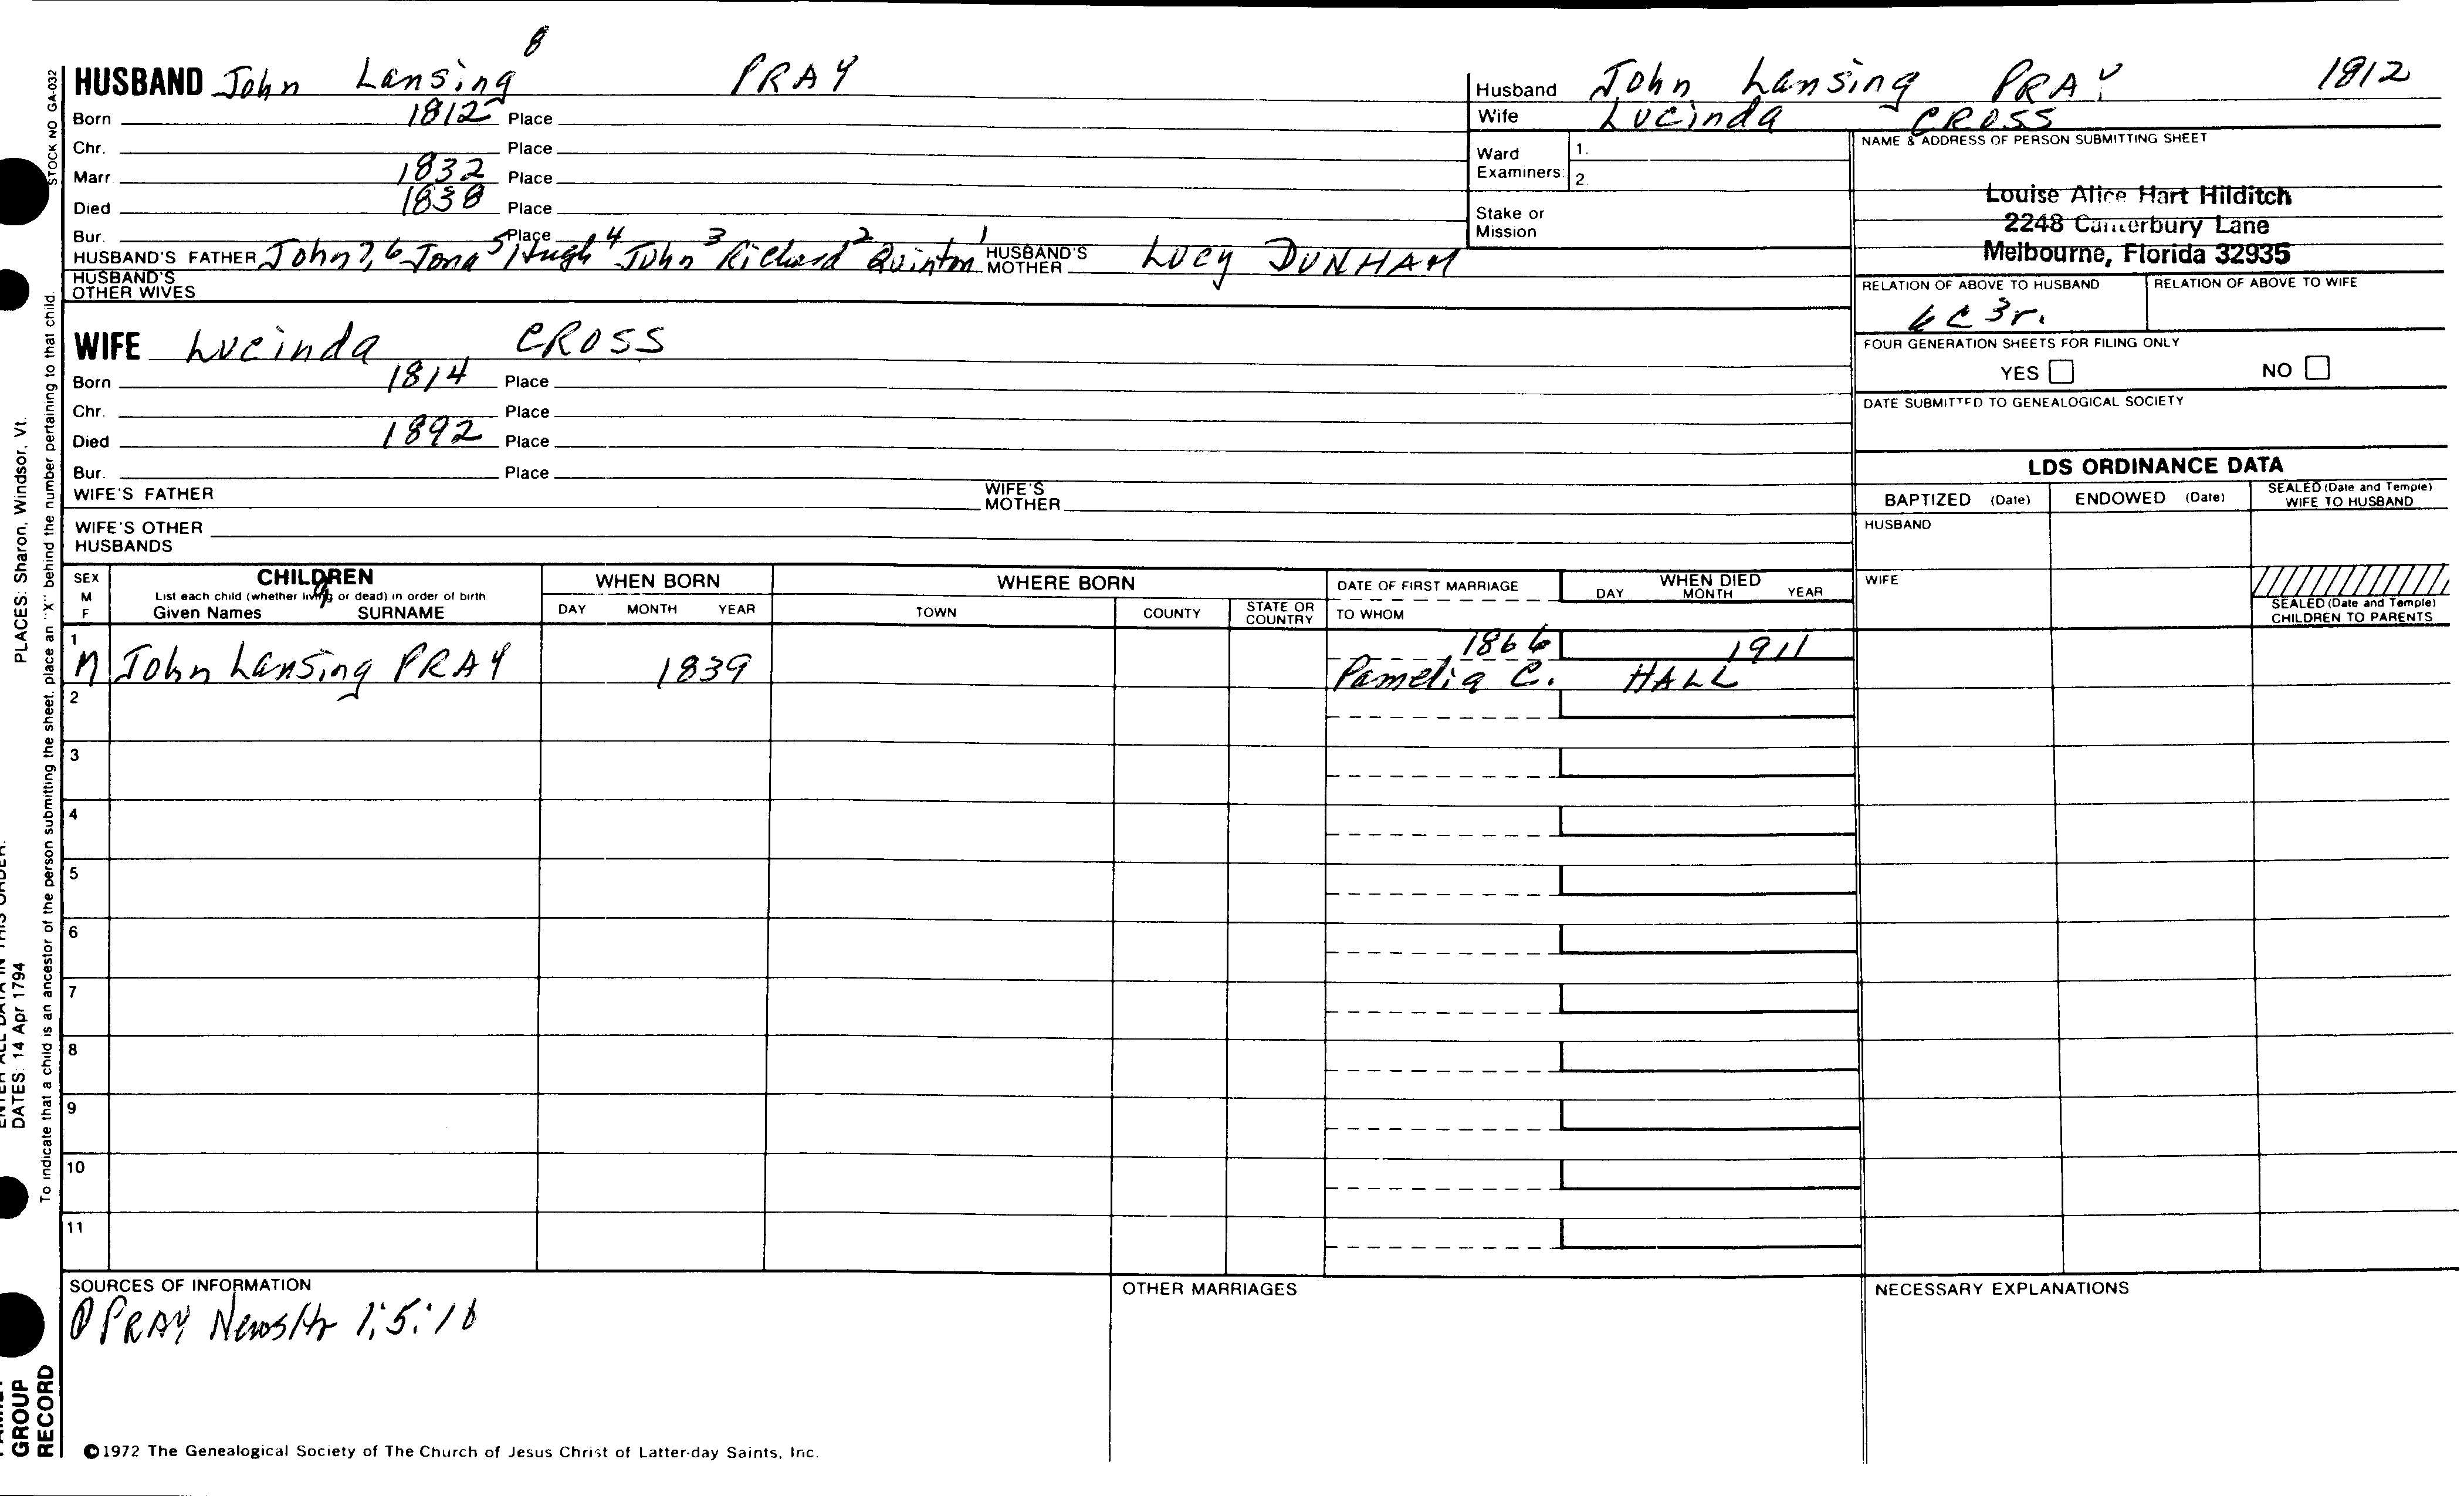 8
HUSBAND John Lansing PRAY
Born 1812 Place
Chr. Place
Marr. 1832 Place
Died 1838 Place
Bur. Place
HUSBAND'S FATHER John 7, 6 Jona 5 Hugh 4 John 3 Richard 2 Quinton 1 HUSBAND'S MOTHER Lucy DUNHAM
HUSBAND'S OTHER WIVES
WIFE Lucinda CROSS
Born 1814 Place
Chr. Place
Died 1892 Place
Bur. Place
WIFE'S FATHER WIFE'S MOTHER
WIFE'S OTHER HUSBANDS
Husband John Lansing PRAY 1812
Wife Lucinda CROSS
Ward Examiners: 1.
2.
Stake or Mission
NAME & ADDRESS OF PERSON SUBMITTING SHEET
Louise Alice Hart Hilditch
2248 Canterbury Lane
Melbourne, Florida 32935
RELATION OF ABOVE TO HUSBAND RELATION OF ABOVE TO WIFE
6C 3r.
FOUR GENERATION SHEETS FOR FILING ONLY
YES NO
DATE SUBMITTED TO GENEALOGICAL SOCIETY
LDS ORDINANCE DATA
BAPTIZED (Date) ENDOWED (Date) SEALED (Date and Temple) WIFE TO HUSBAND
HUSBAND
WIFE
SEALED (Date and Temple) CHILDREN TO PARENTS
SEX M F
CHILDREN
List each child (whether living or dead) in order of birth
Given Names SURNAME
9
WHEN BORN
DAY MONTH YEAR
WHERE BORN
TOWN COUNTY STATE OR COUNTRY
DATE OF FIRST MARRIAGE
TO WHOM
WHEN DIED
DAY MONTH YEAR
1 M John Lansing PRAY 1839 1866 1911
Pamelia C. HALL
2
3
4
5
6
7
8
9
10
11
SOURCES OF INFORMATION
PRAY 1:5:18
OTHER MARRIAGES
NECESSARY EXPLANATIONS
©1972 The Genealogical Society of The Church of Jesus Christ of Latter-day Saints, Inc.
STOCK NO GA-032
To indicate that a child is an ancestor of the person submitting the sheet, place an "X" behind the number pertaining to that child.
PLACES: Sharon, Windsor, Vt.
DATES: 14 Apr 1794
GROUP
RECORD